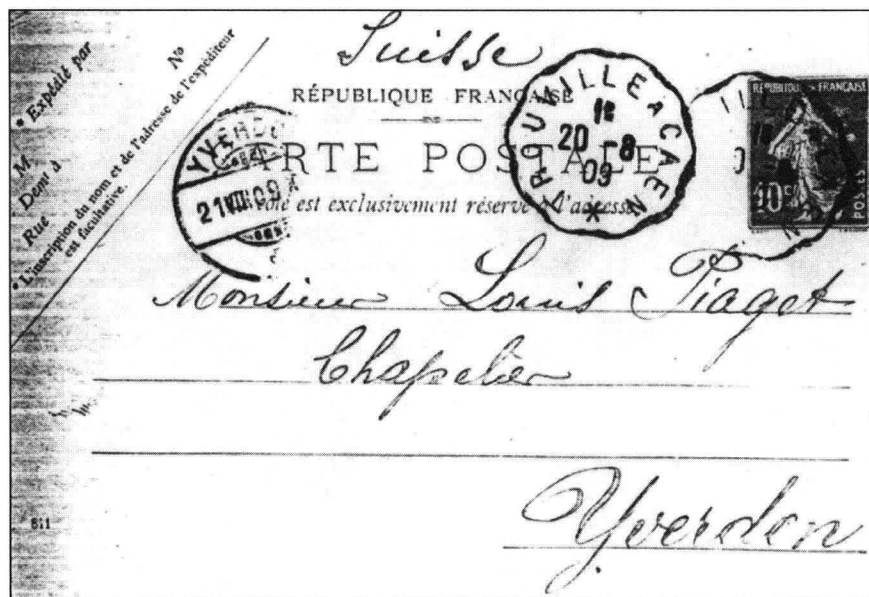 Suisse
* Expédié par
M
Demt à
Rue
No
* L'inscription du nom et de l'adresse de l'expéditeur
est facultative.
RÉPUBLIQUE FRANÇAISE
CARTE POSTALE
est exclusivement réservé à l'adresse
YVERDO
21 VIII 09
TROUVILLE A CAEN
1E
20 -8
09
RÉPUBLIQUE FRANÇAISE
10c
POSTES
Monsieur Louis Piaget
Chapelier
Yverdon
811